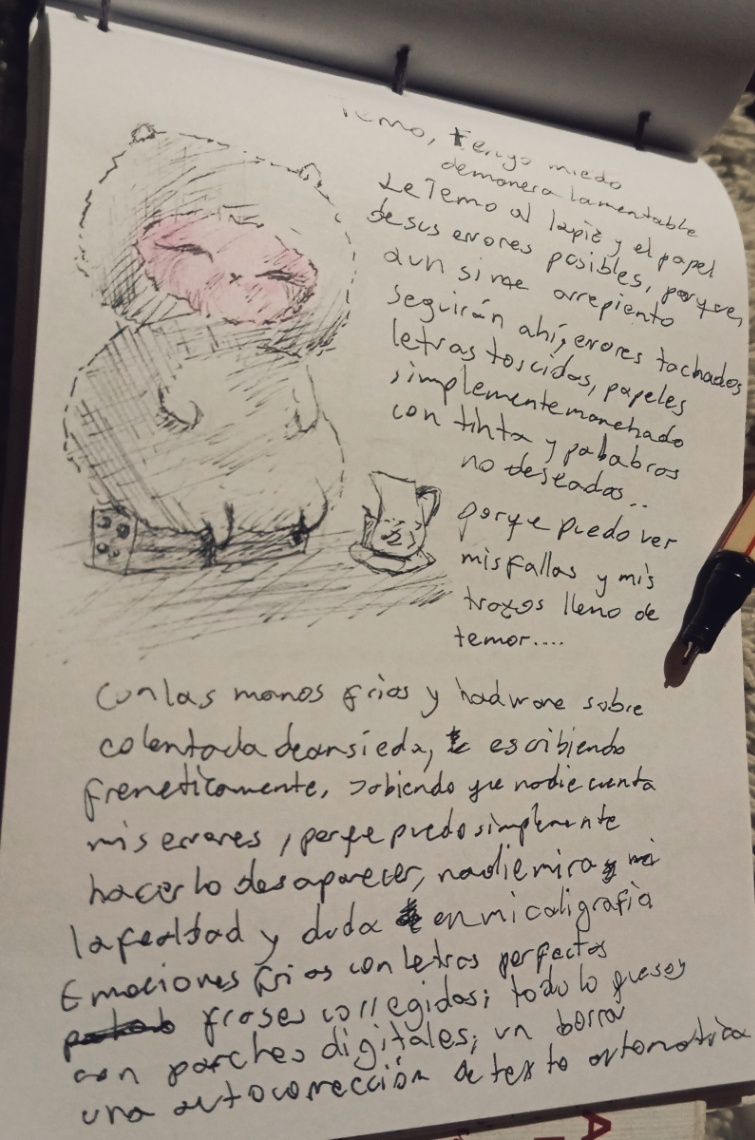 Temo, tengo miedo
demanera lamentable
Le Temo al lapiz y el papel
de sus errores posibles, porque,
aun si me arrepiento
seguirán ahí, errores tachados
letras torcidas, papeles
simplemente manchado
con tinta y palabras
no deseadas..
porqe puedo ver
mis fallas y mis
trazos lleno de
temor....
Con las manos frias y sobre
calentada deansieda, escribiendo
freneticamente, sabiendo que nadie cuenta
mis errores, porqe puedo simplemente
hacerlo desaparecer, nadie mira mi
la fealdad y duda en mi caligrafia
Emociones frias con letras perfectas
frases corregidas; todo lo que soy
con parches digitales; un borra
una autocorrección de texto automatica
A